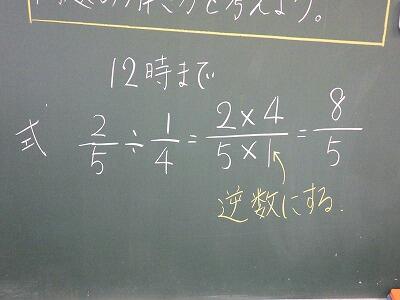 方を考えよう。
12時まで
式 2/5 ÷ 1/4 = 2×4/5×1 = 8/5
逆数にする.